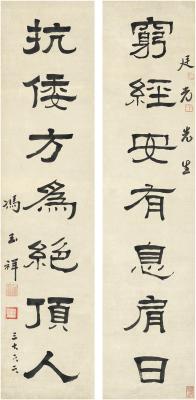 廷
先生
窮經安有息肩日
抗倭方為絕頂人
馮玉祥